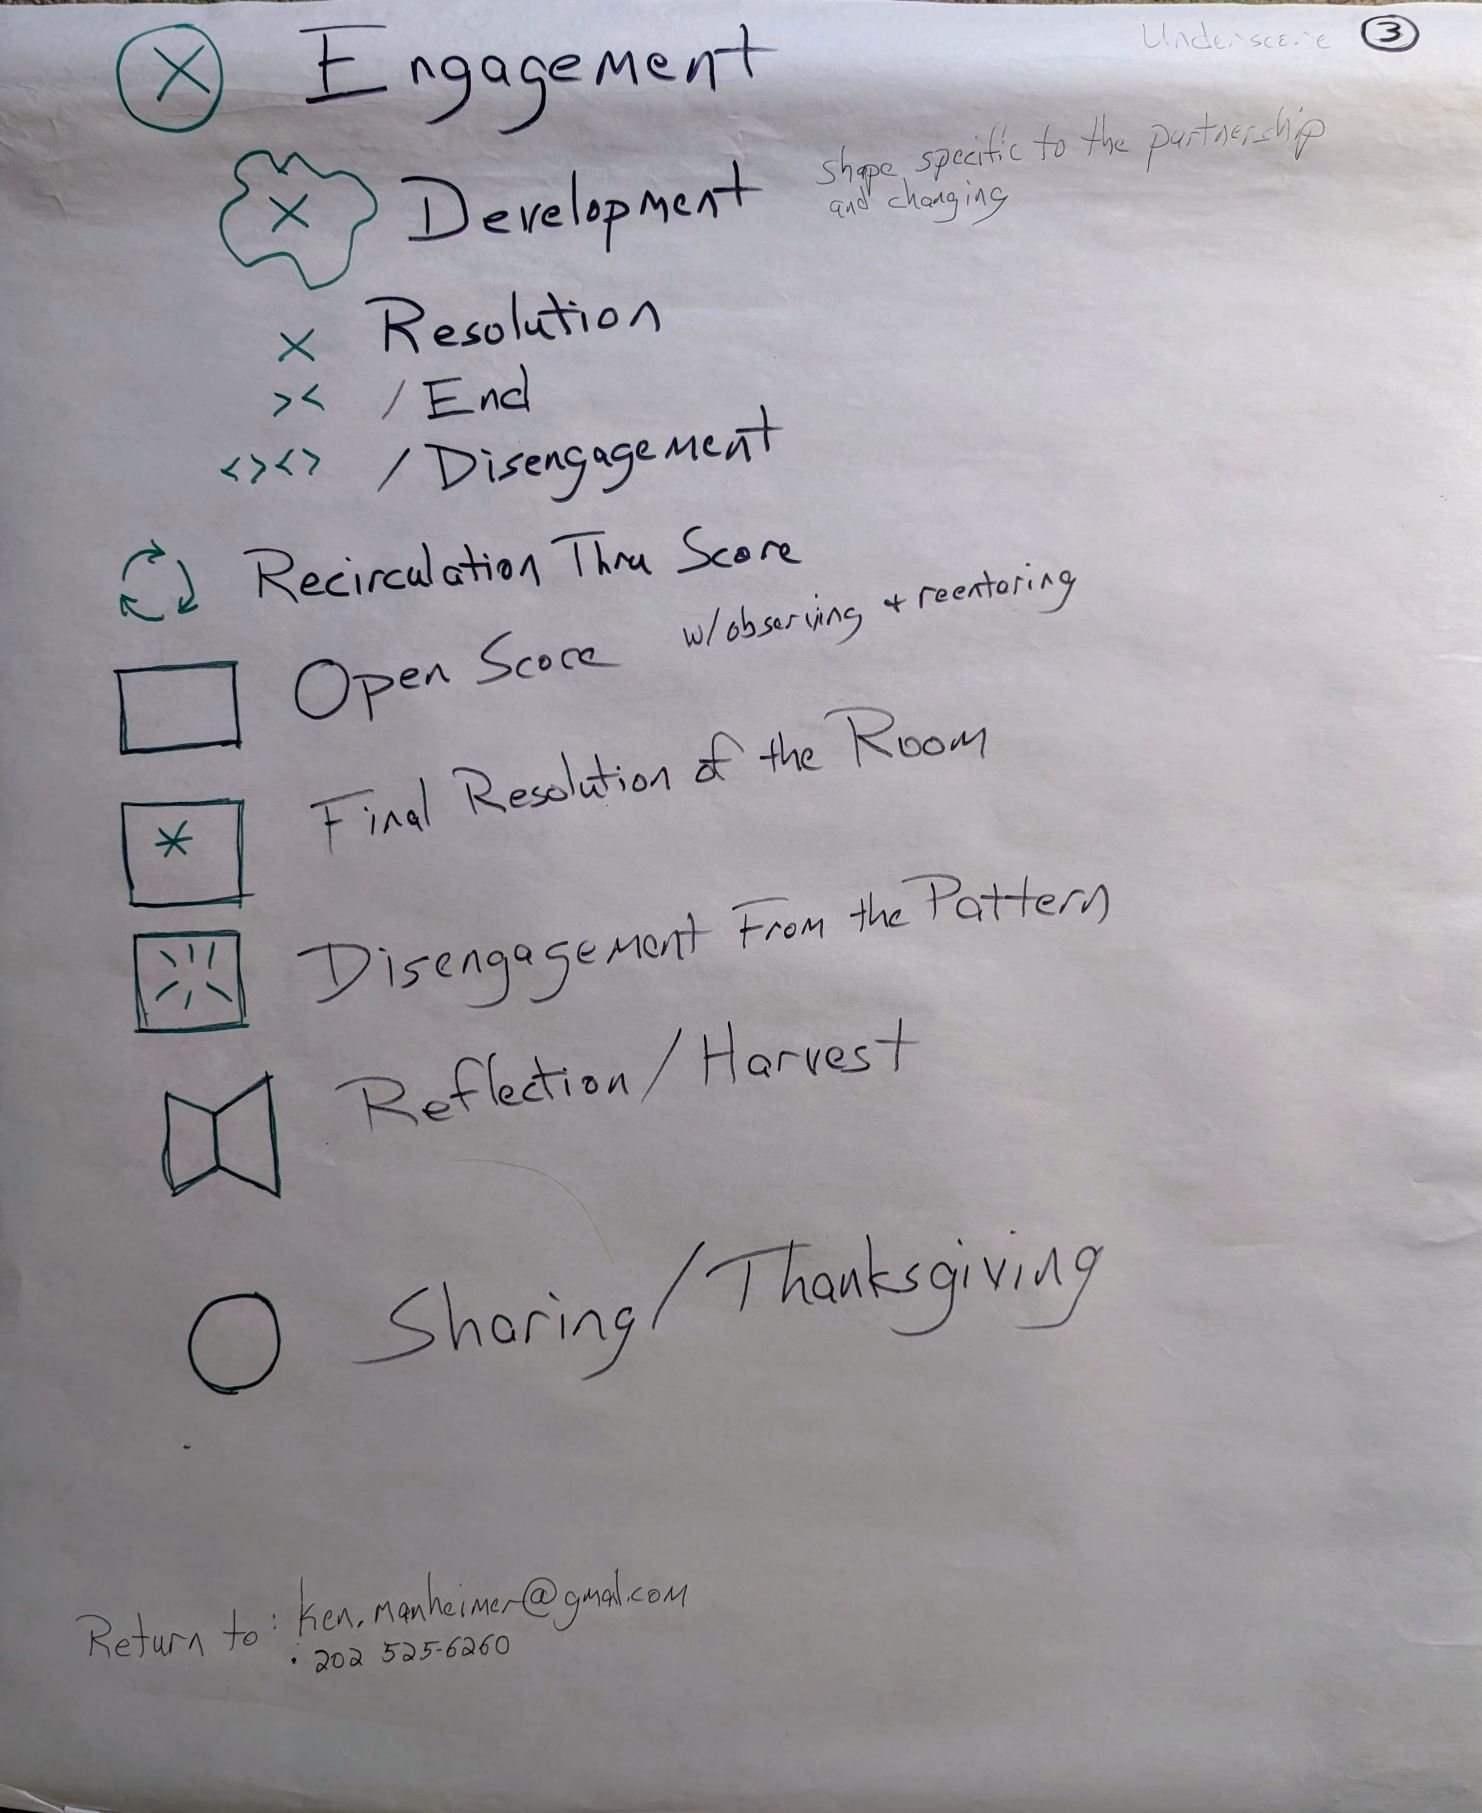 Underscore 3
Engagement
Development
shape specific to the partnership
and changing
Resolution
/ End
/ Disengagement
Recirculation Thru Score
w/observing + reentering
Open Score
Final Resolution of the Room
Disengagement From the Pattern
Reflection / Harvest
Sharing / Thanksgiving
Return to: ken.manheimer@gmail.com
: 202 525-6260